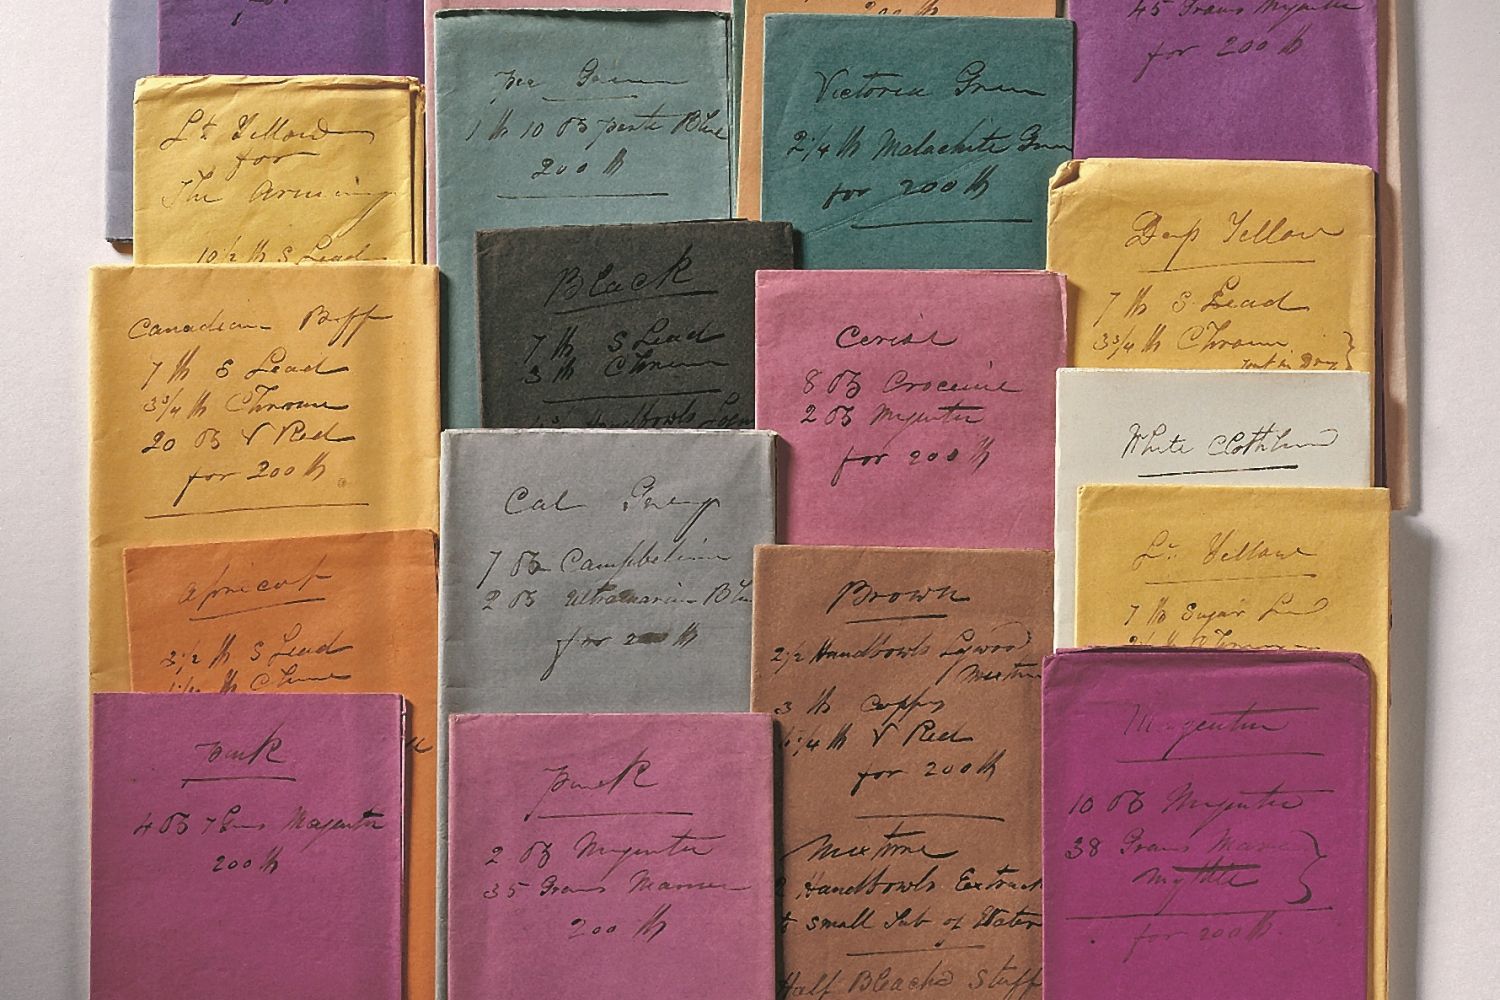 45 Grains Myrtle
for 200 lb
Lt Yellow
for
The Arming
10 1/2 lb S Lead
Pea Green
1 lb 10 oz paste Blue
200 lb
Victoria Green
2 1/4 lb Malachite Green
for 200 lb
Deep Yellow
7 lb S Lead
3 3/4 lb Chrome
Black
7 lb S Lead
3 lb Chrome
Handbowls
Canadian Buff
7 lb S Lead
3 3/4 lb Chrome
20 oz V Red
for 200 lb
Cerise
8 oz Croceine
2 oz Magenta
for 200 lb
White Clothlined
Cal Grey
7 oz Campbeline
2 oz Ultramarine Blue
for 200 lb
Lt Yellow
7 lb Sugar Lead
Apricot
3 1/2 lb S Lead
lb Chrome
Brown
2 1/2 Handbowls Logwood
Mixture
3 lb Coppy
lb V Red
for 200 lb
Mixture
2 Handbowls Extract
to small Tub of Water
Half Bleachd Stuff
Pink
4 oz 7 Grns Magenta
200 lb
Pink
2 oz Magenta
35 Grains
200 lb
Magenta
10 oz Magenta
38 Grains
Myrtle
for 200 lb